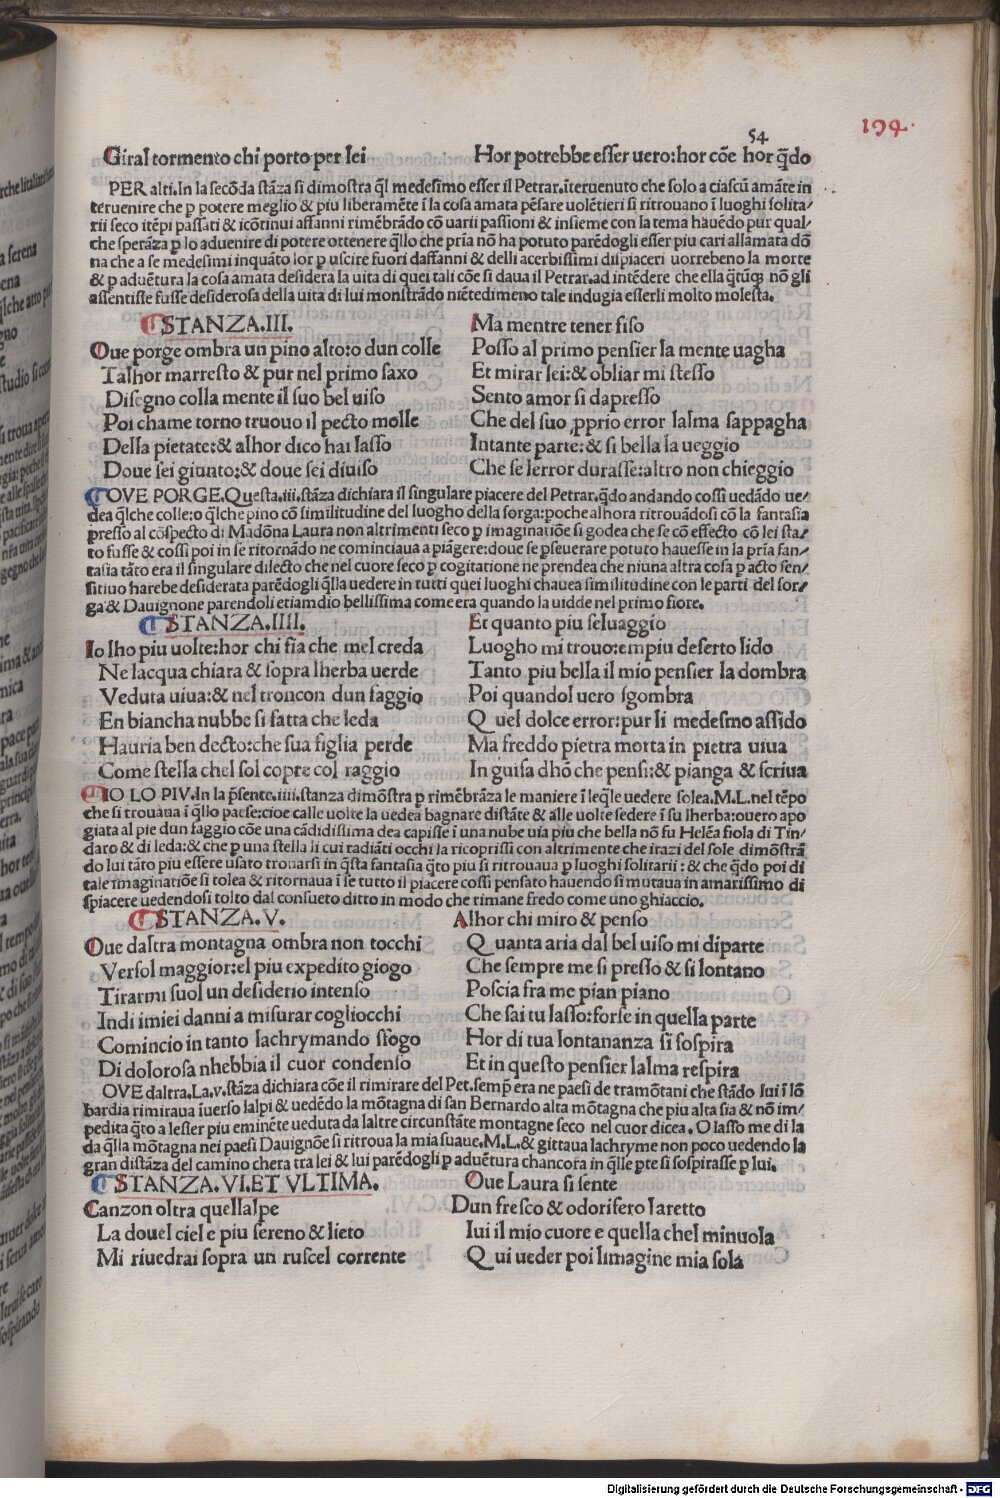 54
194.
Giral tormento chi porto per lei
Hor potrebbe esser uero:hor cõe hor q̃do
PER alti.In la secõda stãza si dimostra q̃l medesimo esser il Petrar.ĩteruenuto che solo a ciascũ amãte in
teruenire che ꝑ potere meglio & piu liberamẽte ĩ la cosa amata pẽsare uolẽtieri si ritrouano ĩ luoghi solita/
rii seco itẽpi passati & icõtinui affanni rimẽbrãdo cõ uarii passioni & insieme con la tema hauẽdo pur qual/
che sperãza ꝑ lo aduenire di potere ottenere q̃llo che pria nõ ha potuto parẽdogli esser piu cari allamata dõ
na che a se medesimi inquãto lor ꝑ uscire fuori daffanni & delli acerbissimi dispiaceri uorrebeno la morte
& ꝑ aduẽtura la cosa amata desidera la uita di quei tali cõe si daua il Petrar.ad intẽdere che ella q̃tũq; nõ gli
assentisse fusse desiderosa della uita di lui monstrãdo niẽtedimeno tale indugia esserli molto molesta.
STANZA.III.
Oue porge ombra un pino alto:o dun colle
Talhor marresto & pur nel primo saxo
Disegno colla mente il suo bel uiso
Poi chame torno truouo il pecto molle
Della pietate:& alhor dico hai lasso
Doue sei giunto:& doue sei diuiso
Ma mentre tener fiso
Posso al primo pensier la mente uagha
Et mirar lei:& obliar mi stesso
Sento amor si dapresso
Che del suo ꝓprio error lalma sappagha
Intante parte:& si bella la ueggio
Che se lerror durasse:altro non chieggio
OVE PORGE.Questa.iii.stãza dichiara il singulare piacere del Petrar.q̃do andando cossi uedãdo ue/
dea q̃lche colle:o q̃lche pino cõ similitudine del luogho della sorga:poche alhora ritrouãdosi cõ la fantasia
presso al cõspecto di Madõna Laura non altrimenti seco ꝑ imaginatiõe si godea che se cõ effecto cõ lei sta/
to fusse & cossi poi in se ritornãdo ne cominciaua a piãgere:doue se ꝑseuerare potuto hauesse in la pria fan/
tasia tãto era il singulare dilecto che nel cuore seco ꝑ cogitatione ne prendea che niuna altra cosa ꝑ acto sen/
sitiuo harebe desiderata parẽdogli q̃lla uedere in tutti quei luoghi chauea similitudine con le parti del sor/
ga & Dauignone parendoli etiamdio bellissima come era quando la uidde nel primo fiore.
STANZA.IIII.
Io lho piu uolte:hor chi fia che mel creda
Ne lacqua chiara & sopra lherba uerde
Veduta uiua:& nel troncon dun faggio
En biancha nubbe si fatta che leda
Hauria ben decto:che sua figlia perde
Come stella chel sol copre col raggio
Et quanto piu seluaggio
Luogho mi trouo:empiu deserto lido
Tanto piu bella il mio pensier la dombra
Poi quandol uero sgombra
Quel dolce error:pur li medesmo assido
Ma freddo pietra morta in pietra uiua
In guisa dhõ che pensi:& pianga & scriua
IO LO PIV.In la p̃sente.iiii.stanza dimõstra ꝑ rimẽbrãza le maniere ĩ leq̃le uedere solea.M.L.nel tẽpo
che si trouaua ĩ q̃llo paese:cioe calle uolte la uedea bagnare distãte & alle uolte sedere ĩ su lherba:ouero apo
giata al pie dun faggio cõe una cãdidissima dea capisse ĩ una nube uia piu che bella nõ fu Helẽa fiola di Tin/
daro & di leda:& che ꝑ una stella li cui radiãti occhi la ricoprissi con altrimente che irazi del sole dimõstrã
do lui tãto piu essere usato trouarsi in q̃sta fantasia q̃to piu si ritrouaua ꝑ luoghi solitarii : & che q̃do poi di
tale imaginatiõe si tolea & ritornaua ĩ se tutto il piacere cossi pensato hauendo si mutaua in amarissimo di
spiacere uedendosi tolto dal consueto ditto in modo che rimane fredo come uno ghiaccio.
STANZA.V.
Oue daltra montagna ombra non tocchi
Versol maggior:el piu expedito giogo
Tirarmi suol un desiderio intenso
Indi imiei danni a misurar cogliocchi
Comincio in tanto lachrymando sfogo
Di dolorosa nhebbia il cuor condenso
Alhor chi miro & penso
Quanta aria dal bel uiso mi diparte
Che sempre me si presso & si lontano
Poscia fra me pian piano
Che sai tu lasso:forse in quella parte
Hor di tua lontananza si sospira
Et in questo pensier lalma respira
OVE daltra.La.v.stãza dichiara cõe il rimirare del Pet.semp̃ era ne paesi de tramõtani che stãdo lui ĩ lõ
bardia rimiraua ĩuerso lalpi & uedẽdo la mõtagna di san Bernardo alta mõtagna che piu alta sia & nõ im/
pedita q̃to a lesser piu eminẽte ueduta da laltre circunstãte montagne seco nel cuor dicea.O lasso me di la
da q̃lla mõtagna nei paesi Dauignõe si ritroua la mia suaue.M.L.& gittaua lachryme non poco uedendo la
gran distãza del camino chera tra lei & lui parẽdogli ꝑ aduẽtura chancora in q̃lle ꝑte si sospirasse ꝑ lui.
STANZA.VI.ET VLTIMA.
Canzon oltra quellalpe
La douel ciel e piu sereno & lieto
Mi riuedrai sopra un ruscel corrente
Oue Laura si sente
Dun fresco & odorifero laretto
Iui il mio cuore e quella chel minuola
Qui ueder poi limagine mia sola
Digitalisierung gefördert durch die Deutsche Forschungsgemeinschaft - DFG